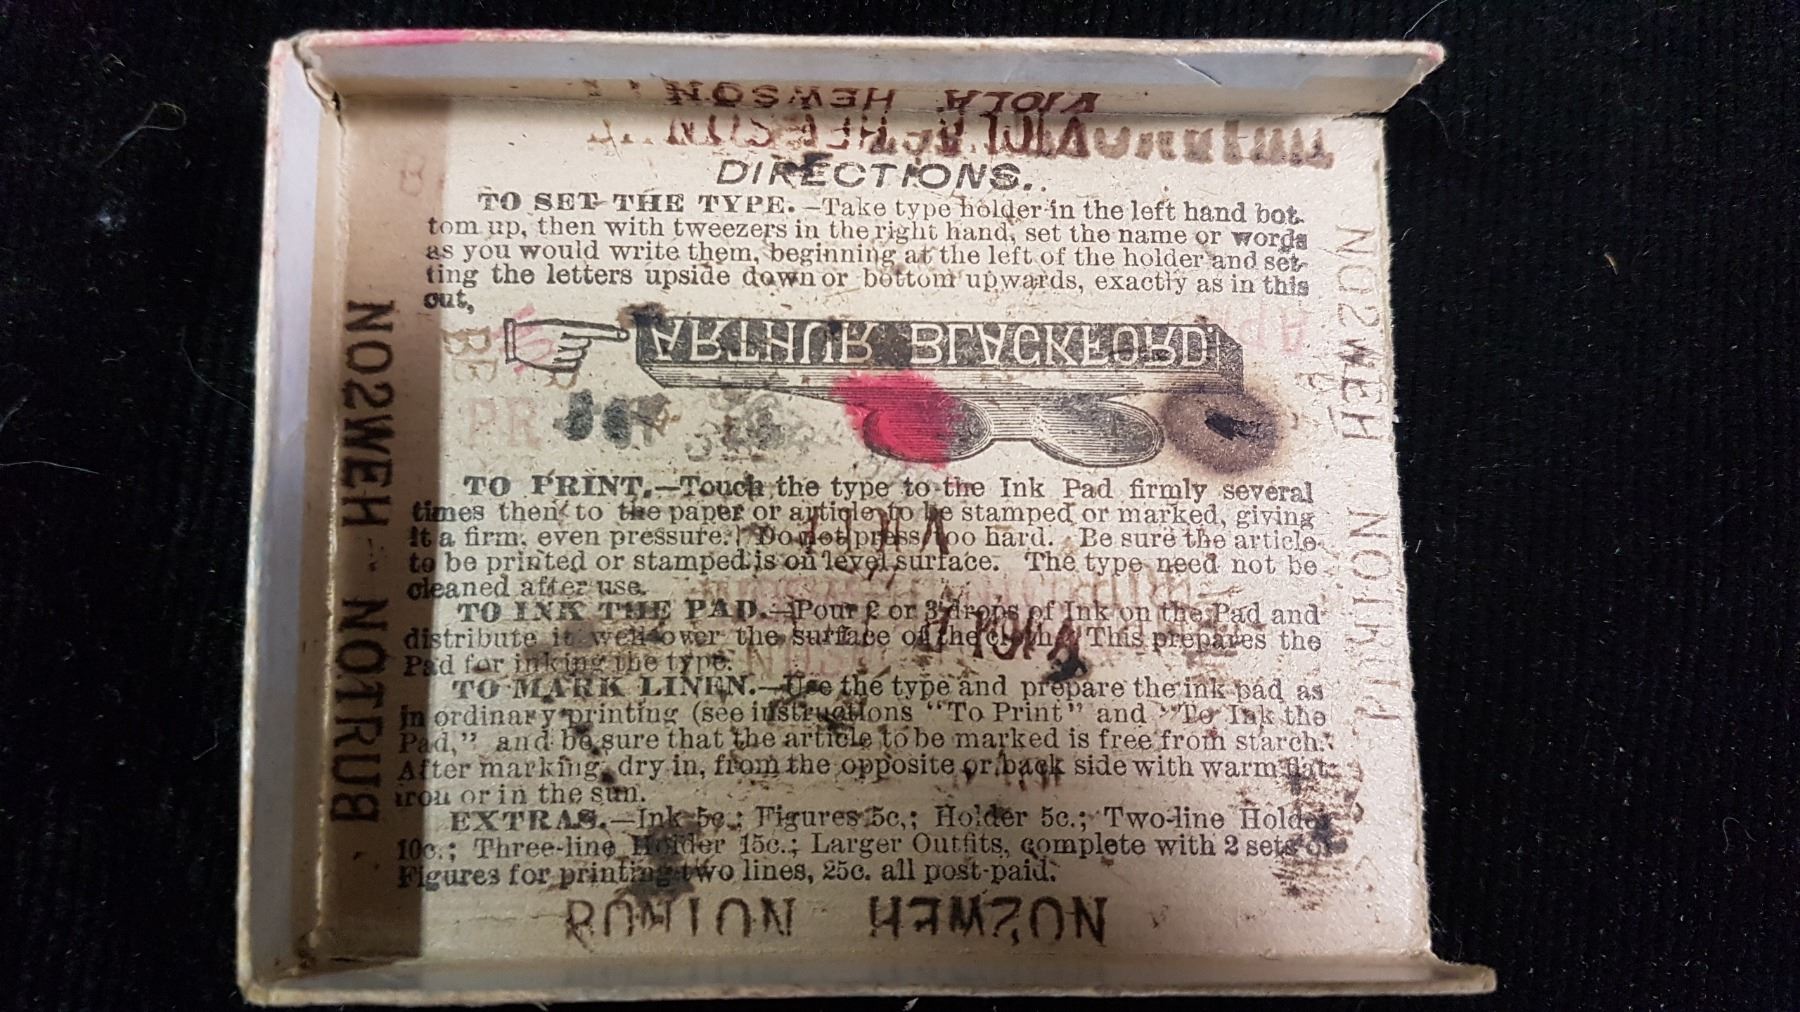 VIOLA HEWSON
VIOLA
DIRECTIONS.
TO SET THE TYPE.—Take type holder in the left hand bot-
tom up, then with tweezers in the right hand, set the name or words
as you would write them, beginning at the left of the holder and set-
ting the letters upside down or bottom upwards, exactly as in this
cut,
ARTHUR BLACKFORD
TO PRINT.—Touch the type to the Ink Pad firmly several
times then to the paper or article to be stamped or marked, giving
it a firm, even pressure. Do not press too hard. Be sure the article
to be printed or stamped is on level surface. The type need not be
cleaned after use.
TO INK THE PAD.—Pour 2 or 3 drops of Ink on the Pad and
distribute it well over the surface of the cloth. This prepares the
Pad for inking the type.
VIOLA
TO MARK LINEN.—Use the type and prepare the ink pad as
in ordinary printing (see instructions "To Print" and "To Ink the
Pad," and be sure that the article to be marked is free from starch.
After marking, dry in, from the opposite or back side with warm flat
iron or in the sun.
EXTRAS.—Ink 5c.; Figures 5c,; Holder 5c.; Two-line Holder
10c.; Three-line Holder 15c.; Larger Outfits, complete with 2 sets of
Figures for printing two lines, 25c. all post-paid.
BURTON HEWSON
BURTON HEWSON
BURTON HEWSON